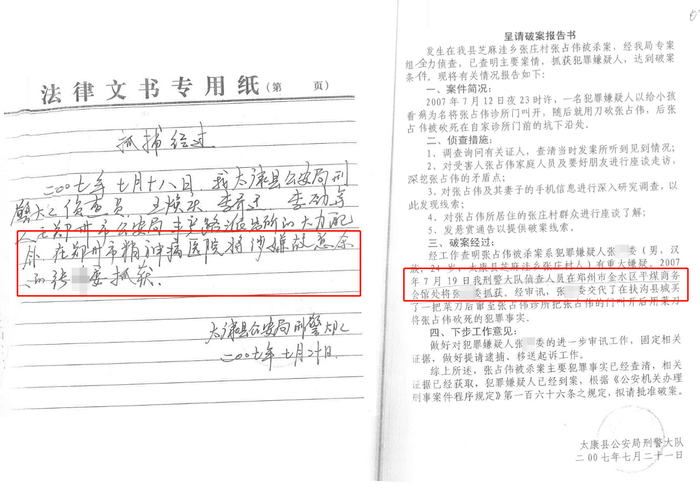 法律文书专用纸（第　页）
抓捕经过
二00七年七月十八日，我太康县公安局刑
警大队侦查员
郑州市公安局丰产路派出所的大力配
合，在郑州市精神病医院将涉嫌故意杀
的张 委抓获.
太康县公安局刑警大队
二00七年七月二十日.
呈请破案报告书
发生在我县芝麻洼乡张庄村张占伟被杀案，经我局专案
组全力侦查，已查明主要案情，抓获犯罪嫌疑人，达到破案
条件。现将有关情况报告如下：
一、案件简况：
2007年7月12日夜23时许，一名犯罪嫌疑人以给小孩
看病为名将张占伟诊所门叫开，随后就用刀砍张占伟，后张
占伟被砍死在自家诊所门前的坑下沿处。
二、侦查措施：
1、调查询问有关证人，查清当时发案所听到见到情况；
2、对受害人张占伟家庭人员及要好朋友进行座谈走访，
深挖张占伟的矛盾点；
3、对张占伟及其妻子的手机信息进行深入研究调查，以
此发现线索；
4、对张占伟所居住的张庄村群众进行座谈了解；
5、发悬赏通告以提供破案线索。
三、破案经过：
经工作查明张占伟被杀案系犯罪嫌疑人张 委（男，汉
族，21岁，太康县芝麻洼乡张庄村人）有重大嫌疑。2007
年7月19日我刑警大队侦查人员在郑州市金水区平煤商务
会馆处将张 委抓获。经审讯，张 委交代了在扶沟县城买
了一把菜刀后窜至张占伟诊所把张占伟的门叫开后用菜刀
将张占伟砍死的犯罪事实。
四、下步工作意见：
做好对犯罪嫌疑人张 委的进一步审讯工作，固定相关
证据，做好提请逮捕、移送起诉工作。
综上所述，张占伟被杀案主要犯罪事实已经查清，相关
证据已经获取，犯罪嫌疑人已经到案，根据《公安机关办理
刑事案件程序规定》第一百六十六条之规定，拟请批准破案。
太康县公安局刑警大队
二00七年七月二十一日